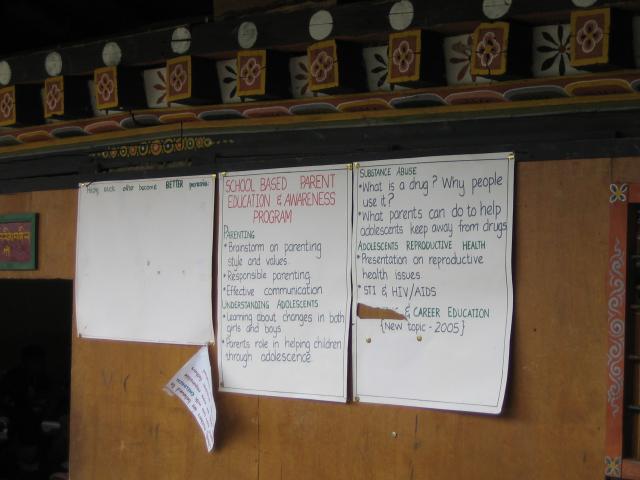 other become BETTER parents.
SCHOOL BASED PARENT
EDUCATION & AWARENESS
PROGRAM
PARENTING
• Brainstorm on parenting
style and values.
• Responsible parenting.
• Effective communication
UNDERSTANDING ADOLESCENTS
• Learning about changes in both
girls and boys
• Parents role in helping children
through adolescence.
SUBSTANCE ABUSE
• What is a drug? Why people
use it?
• What parents can do to help
adolescents keep away from drugs
ADOLESCENTS REPRODUCTIVE HEALTH
• Presentation on reproductive
health issues
• STI & HIV/AIDS
& CAREER EDUCATION
{New topic - 2005}